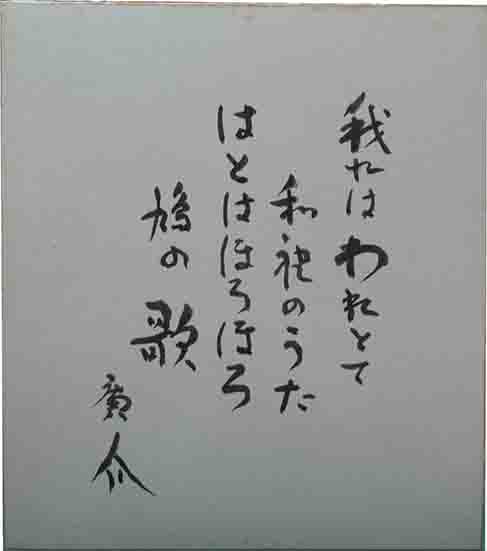 我れはわれとて
和秧のうた
はとはほろほろ
鳩の歌
廣